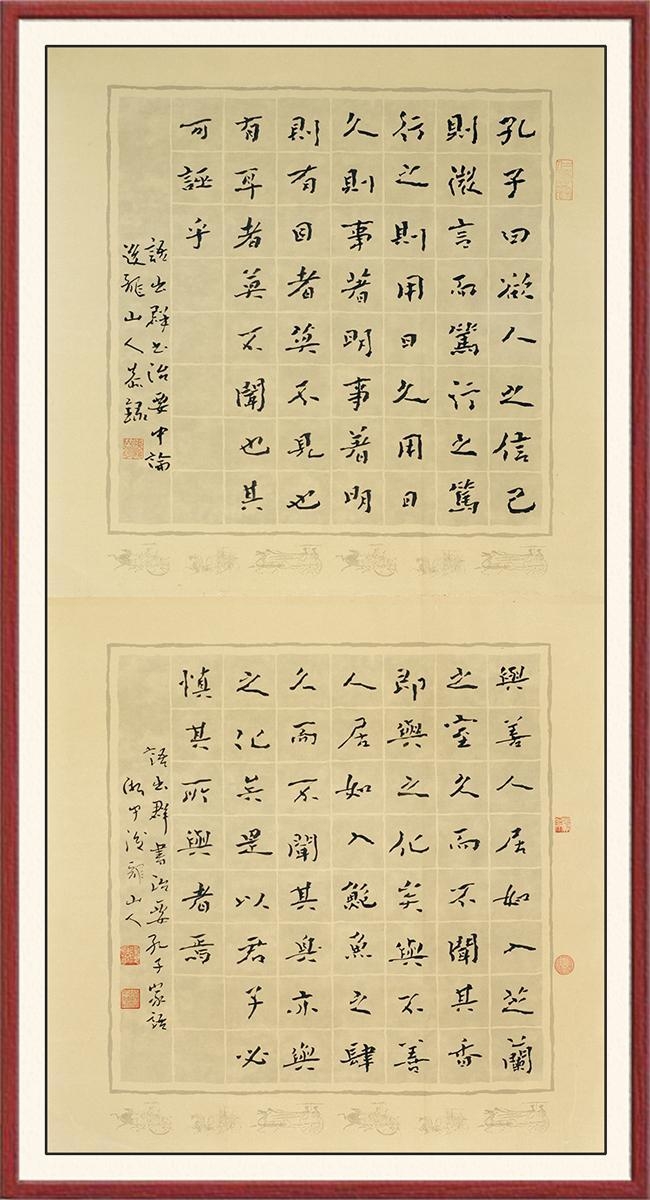 孔子曰欲人之信己
則微言而篤行之篤
行之則用日久用日
久則事著明事著明
則有目者莫不見也
有耳者莫不聞也其
可誣乎
語出群书治要中論
龍山人恭錄
與善人居如入芝蘭
之室久而不聞其香
即與之化矣與不善
人居如入鮑魚之肆
久而不聞其臭亦與
之化矣是以君子必
慎其所與者焉
語出群書治要孔子家語
龍山人